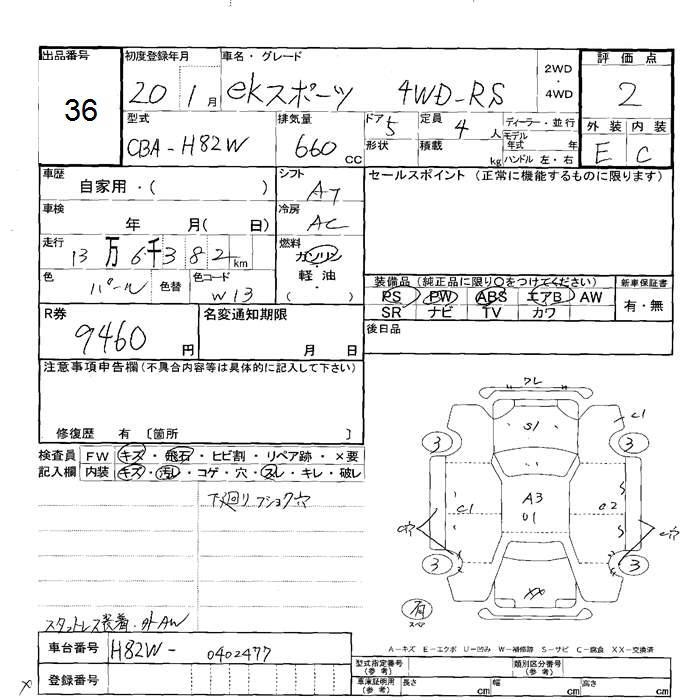 出品番号 初度登録年月 車名・グレード 2WD・4WD 評価点
36 20 1月 ekスポーツ 4WD-RS 2
型式 排気量 ドア 5 定員 4人 ディーラー・並行 外装 内装
CBA-H82W 660 CC 形状 積載 kg モデル年式 年 ハンドル 左・右 E C
車歴 自家用・( ) シフト AT セールスポイント (正常に機能するものに限ります)
車検 年 月( 日) 冷房 AC
走行 13万6千382km 燃料 ガソリン・軽油 ( )
色 パール 色替 色コード W13
装備品 (純正品に限り○をつけてください) 新車保証書
PS PW ABS エアB AW 有・無
SR ナビ TV カワ
R券 9460円 名変通知期限 月 日 後日品
注意事項申告欄(不具合内容等は具体的に記入して下さい)
修復歴 有 〔箇所 〕
検査員 FW キズ・飛石・ヒビ割・リペア跡・×要
記入欄 内装 キズ・汚レ・コゲ・穴・スレ・キレ・破レ
下廻リフショク穴
ワレ
S1 C1
3 3
A3
C1 01 02
C穴 C穴
3 3
XX
有
スペア
スタットレス装着・外AW
A-キズ E-エクボ U-凹み W-補修跡 S-サビ C-腐食 XX-交換済
車台番号 H82W-0402477
型式指定番号(参考) 類別区分番号(参考)
登録番号 車庫証明用(参考) 長さ cm 幅 cm 高さ cm